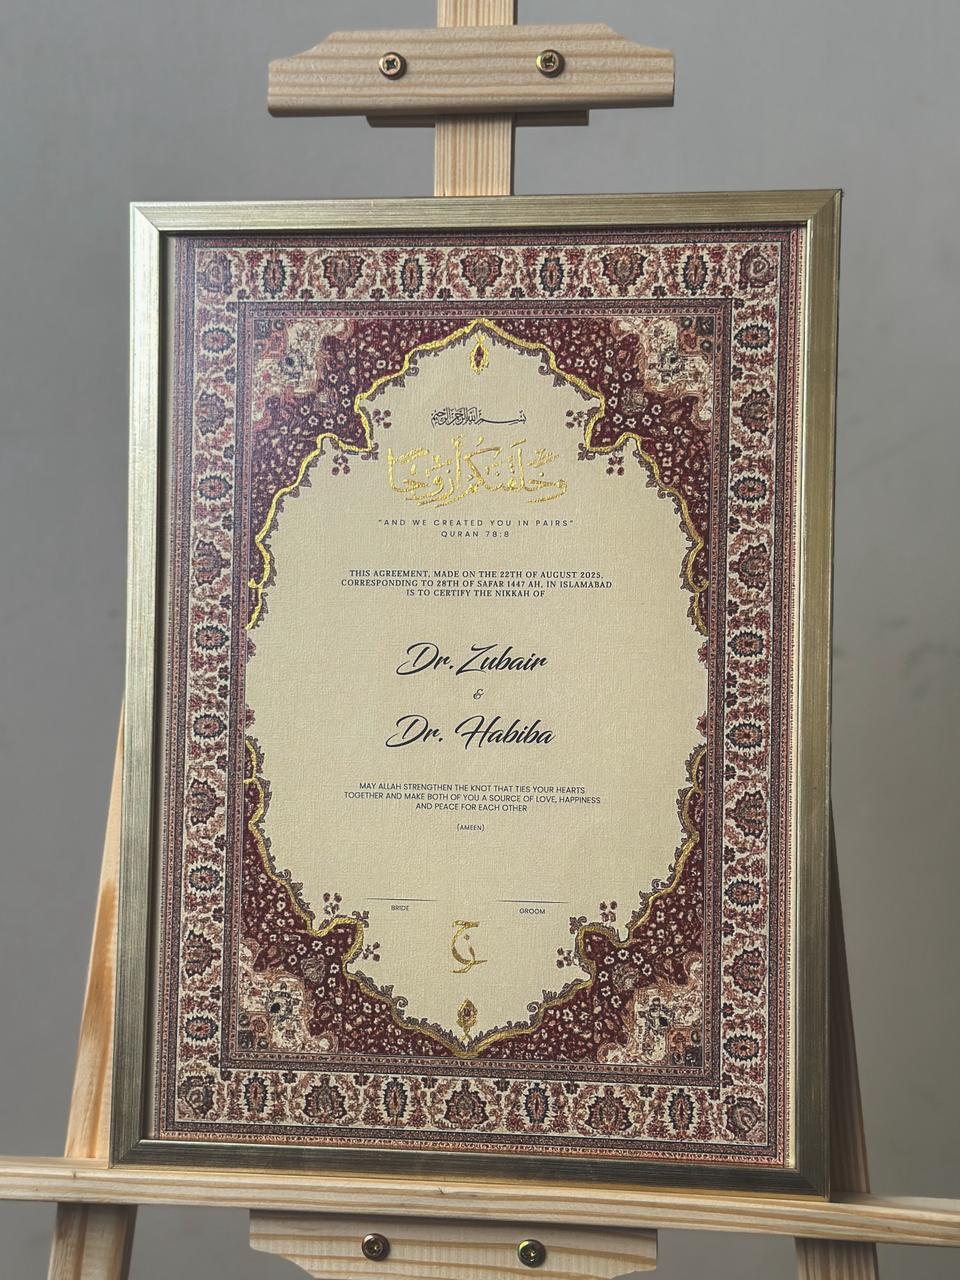 بسم الله الرحمن الرحيم
وَخَلَقْنَٰكُمْ أَزْوَٰجًا
"AND WE CREATED YOU IN PAIRS"
QURAN 78:8
THIS AGREEMENT, MADE ON THE 22TH OF AUGUST 2025,
CORRESPONDING TO 28TH OF SAFAR 1447 AH, IN ISLAMABAD
IS TO CERTIFY THE NIKKAH OF
Dr. Zubair
&
Dr. Habiba
MAY ALLAH STRENGTHEN THE KNOT THAT TIES YOUR HEARTS
TOGETHER AND MAKE BOTH OF YOU A SOURCE OF LOVE, HAPPINESS
AND PEACE FOR EACH OTHER
(AMEEN)
BRIDE
GROOM